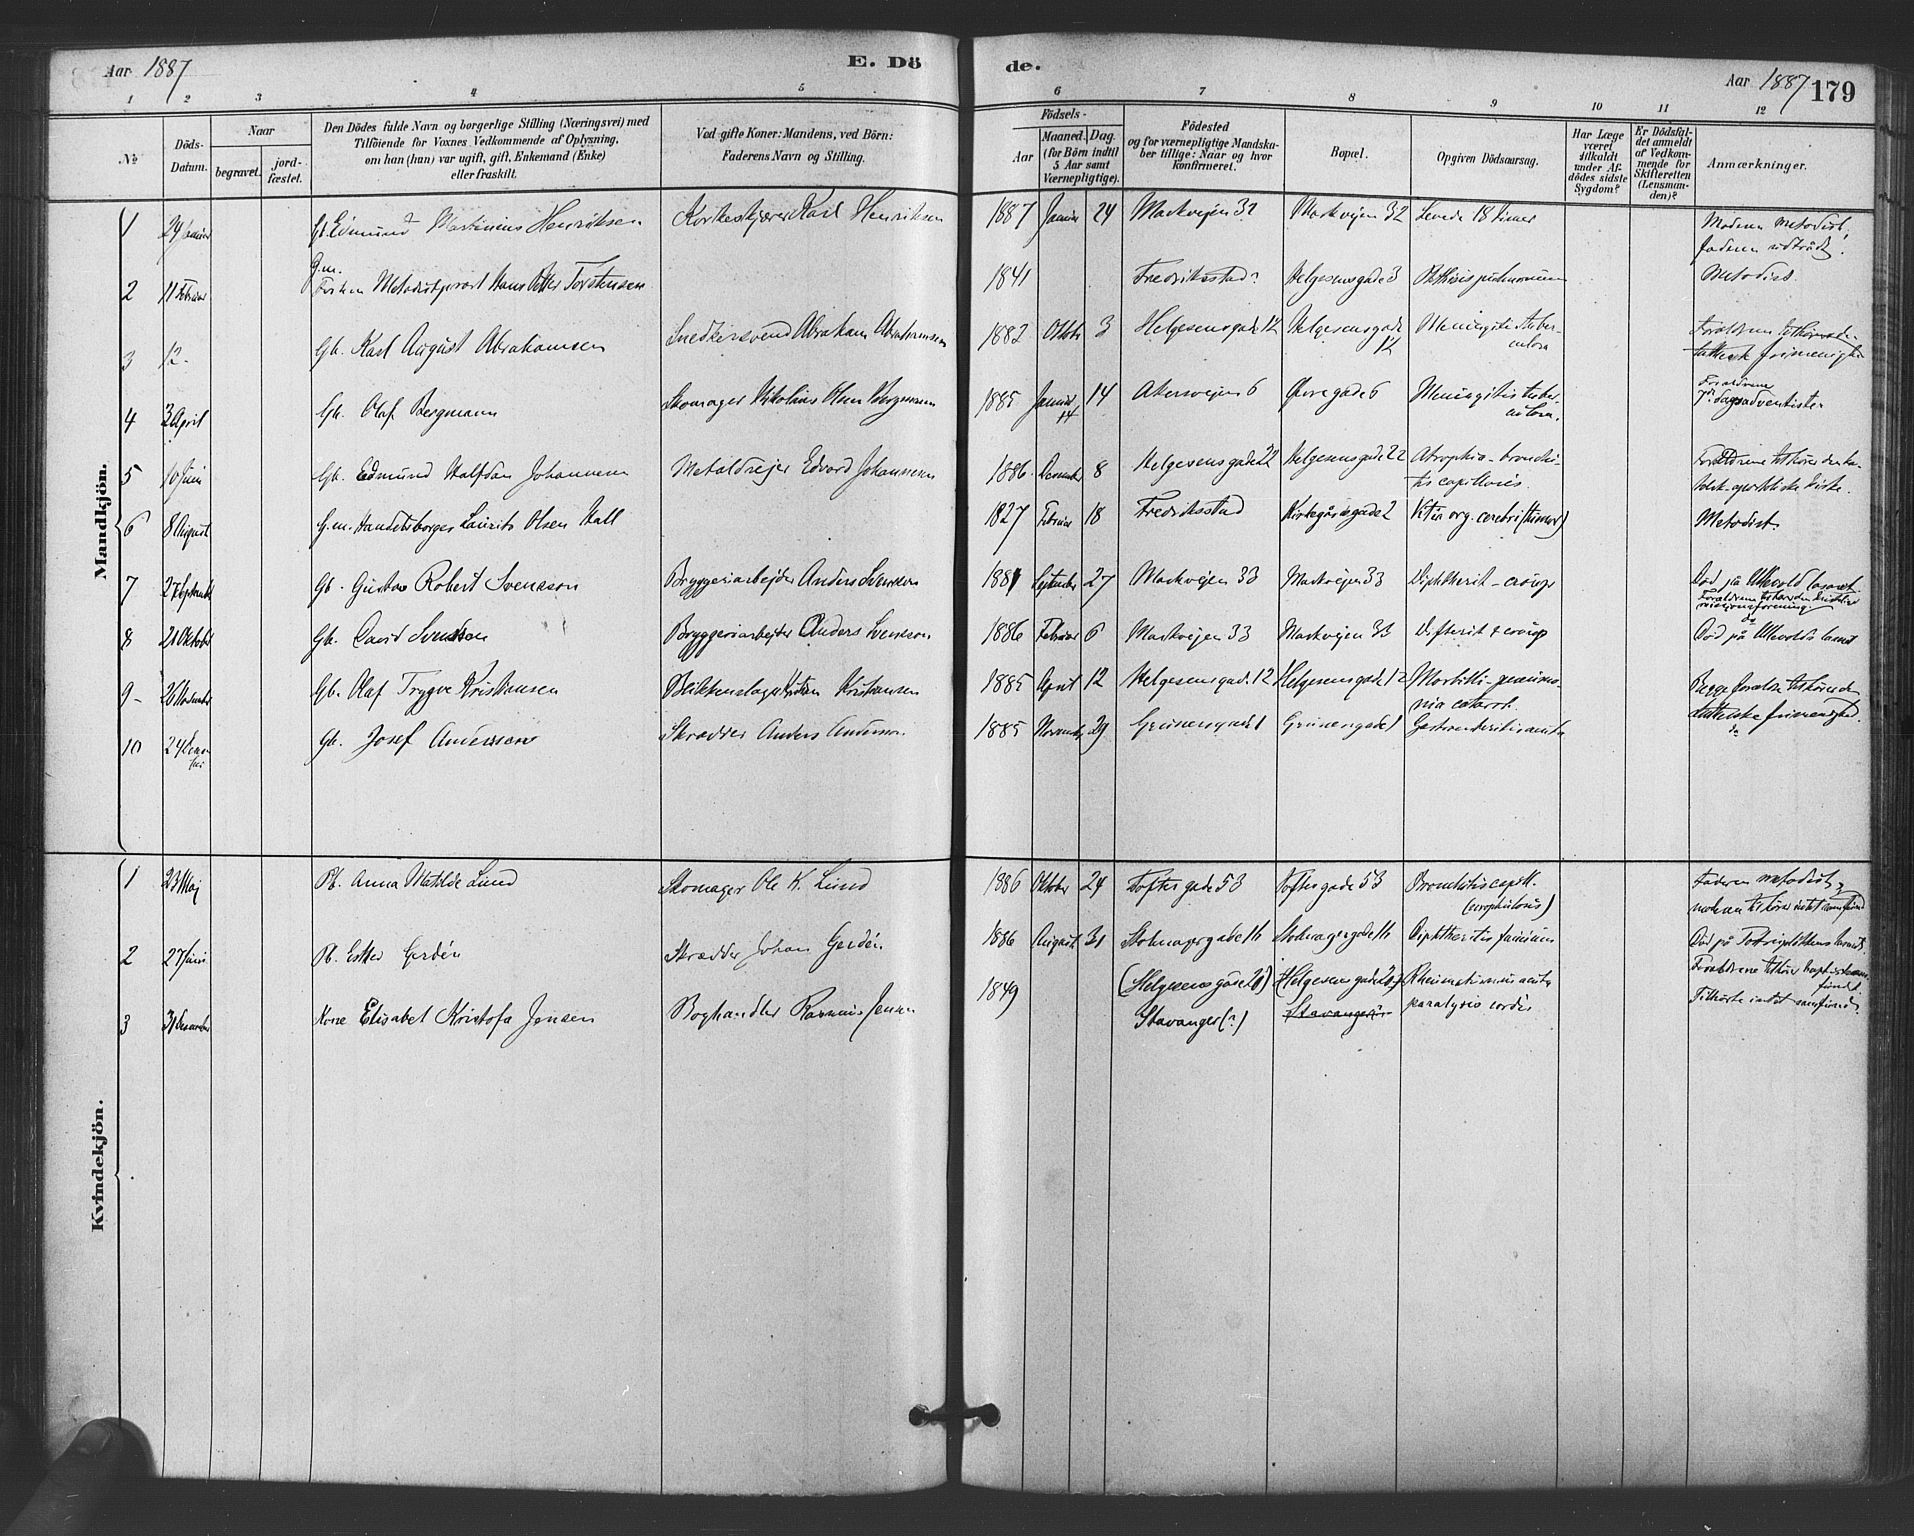 Aar 1887 E. Dö de. Aar 1887 179
1 2 3 4 5 6 7 8 9 10 11 12
№ Döds-Datum. Naar begravet. jord-fæstet.
Den Dödes fulde Navn og borgerlige Stilling (Næringsvei) med
Tilföiende for Voxnes Vedkommende af Oplysning,
om han (hun) var ugift, gift, Enkemand (Enke)
eller fraskilt.
Ved gifte Koner: Mandens, ved Börn:
Faderens Navn og Stilling.
Födsels-
Aar Maaned. Dag.
(for Börn indtil
5 Aar samt
Værnepligtige).
Födested
og for værnepligtige Mandska-
ber tillige: Naar og hvor
konfirmeret.
Bopæl.
Opgiven Dödsaarsag.
Har Læge
været
tilkaldt
under Af-
dödes sidste
Sygdom?
Er Dödsfal-
det anmeldt
af Vedkom-
mende for
Skifteretten
(Lensman-
den)?
Anmærkninger.
Mandkjön.
1 24 Januar Gb. Edmund Martinius Henriksen Korkeskjærer Karl Henriksen 1887 Januar 24 Markvejen 32 Markvejen 32 Levede 18 timer Moderen metodist,
faderen udtrådt.
2 11 Februar G.m.
Forhen Metodistprest Hans Petter Torstensen 1841 Fredriksstad? Helgesensgade 3 Phthisis pulmonum Metodist.
3 12 - Gb. Karl August Abrahamsen Snedkersvend Abraham Abrahamsen 1882 Oktbr 3 Helgesensgade 12 Helgesensgade
12 Meningitis tuber-
culosa Forældrene tilhører den
lutherske frimenighed
4 3 April Gb. Olaf Bergmann Skomager Nikolaus Olsen Bergmann 1885 Januar
14 14 Akersvejen 6 Øvregade 6 Meningitis tuber-
culosa. Forældrene
7de dagsadventister
5 10 Juni Gb. Edmund Halfdan Johannesen Metaldrejer Edvard Johannesen 1886 November 8 Helgesensgade 22 Helgesensgade 22 Atrophia - bronchi-
tis capillaris. Forældrene tilhører den ka-
tolsk-apostoliske kirke.
6 8 August G.m. Handelsborger Laurits Olsen Hall 1827 Februar 18 Fredriksstad Kirkegårdsgade 2 Vitia org. cerebri (tumor) Metodist.
7 27 Septembr Gb. Gustav Robert Svensson Bryggeriarbejder Anders Svensson 1881 September 27 Markvejen 33 Markvejen 33 Diphtherit - croup Død på Ullevold lasaret
Forældrene tilhører den kristelige
misjonsforening.
8 21 Oktober Gb. David Svensson Bryggeriarbejder Anders Svensson 1886 Februar 6 Markvejen 33 Markvejen 33 Difterit & croup do
Død på Ullevolds lasaret
9 - 26 November Gb. Olaf Trygve Kristiansen Blikkenslager Kristian Kristiansen 1885 April 12 Helgesensgade 12 Helgesensgade 12 Morbilli - pneumo-
nia catarrh. Begge forældre tilhører den
lutherske frimenighed.
10 24 Decem-
ber Gb. Josef Anderssen Skrædder Anders Andersson 1885 Novembr 29 Grünersgade 1 Grünersgade 1 Gastroenteritis acuta do
Kvindekjön.
1 23 Maj Pb. Anna Matilde Lund Skomager Ole K. Lund 1886 Oktober 24 Toftesgade 53 Toftesgade 53 Bronchitis capill.
(scrophulosis) Faderen metodist,
moderen tilhører intet samfund
2 27 Juni Pb. Ester Gerdén Skrædder Johan Gerdén 1886 August 31 Stolmagergade 16 Stolmagergade 16 Diphtheritis faucium Død på lasaret.
Forældrene tilhører baptistsam-
fundet.
3 31 December Kone Elisabet Kristofa Jensen Boghandler Rasmus Jensen 1849 (Helgesensgade 20)
Stavanger (?) Helgesensgade 20
Stavanger Rheumatismus acutus
paralysis cordis Tilhørte intet samfund.